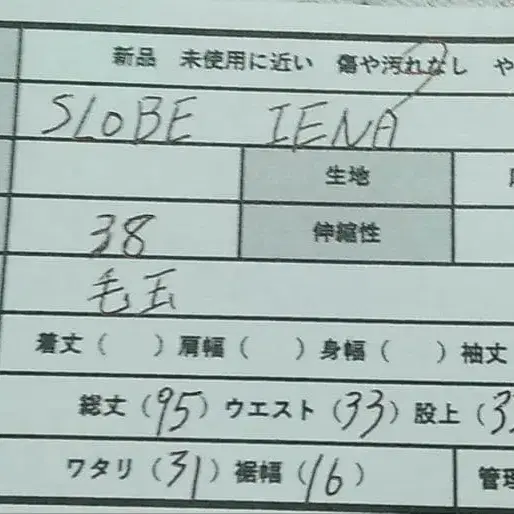 新品 未使用に近い 傷や汚れなし や
SLOBE IENA
生地
38 伸縮性
毛玉
着丈( )肩幅( )身幅( )袖丈
総丈(95)ウエスト(33)股上(3
ワタリ(31)裾幅(16) 管理